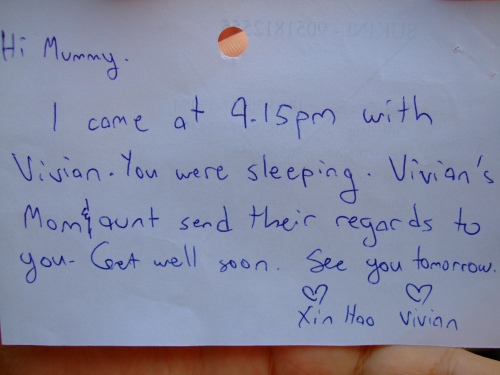 Hi Mummy.
I came at 9.15pm with
Vivian. You were sleeping. Vivian's
Mom & aunt send their regards to
you. Get well soon. See you tomorrow.
Xin Hao Vivian